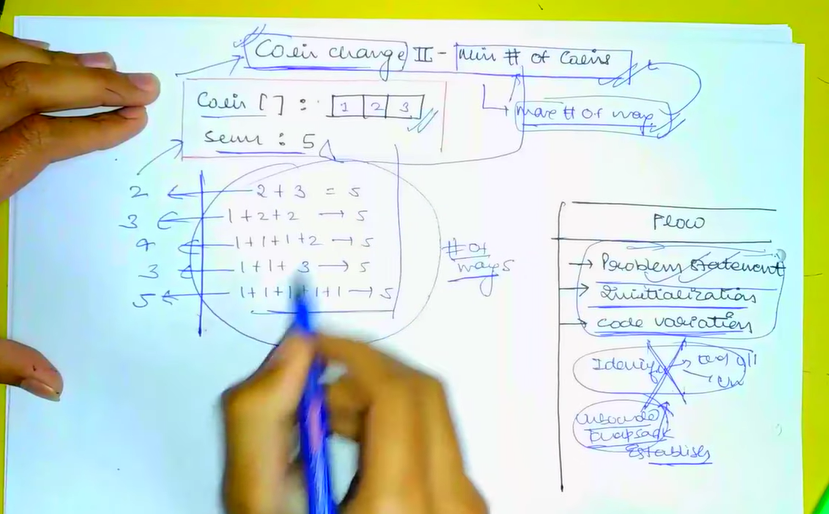 Coin change II - min # of coins
Coin [] : 1 2 3
Sum : 5
max # of way
2 ← 2 + 3 = 5
3 ← 1 + 2 + 2 → 5
4 ← 1 + 1 + 1 + 2 → 5
3 ← 1 + 1 + 3 → 5
5 ← 1 + 1 + 1 + 1 + 1 → 5
# of
ways
Flow
→ Problem Statement
→ Initialization
→ code variation
Identify
unbounded
knapsack
Establish